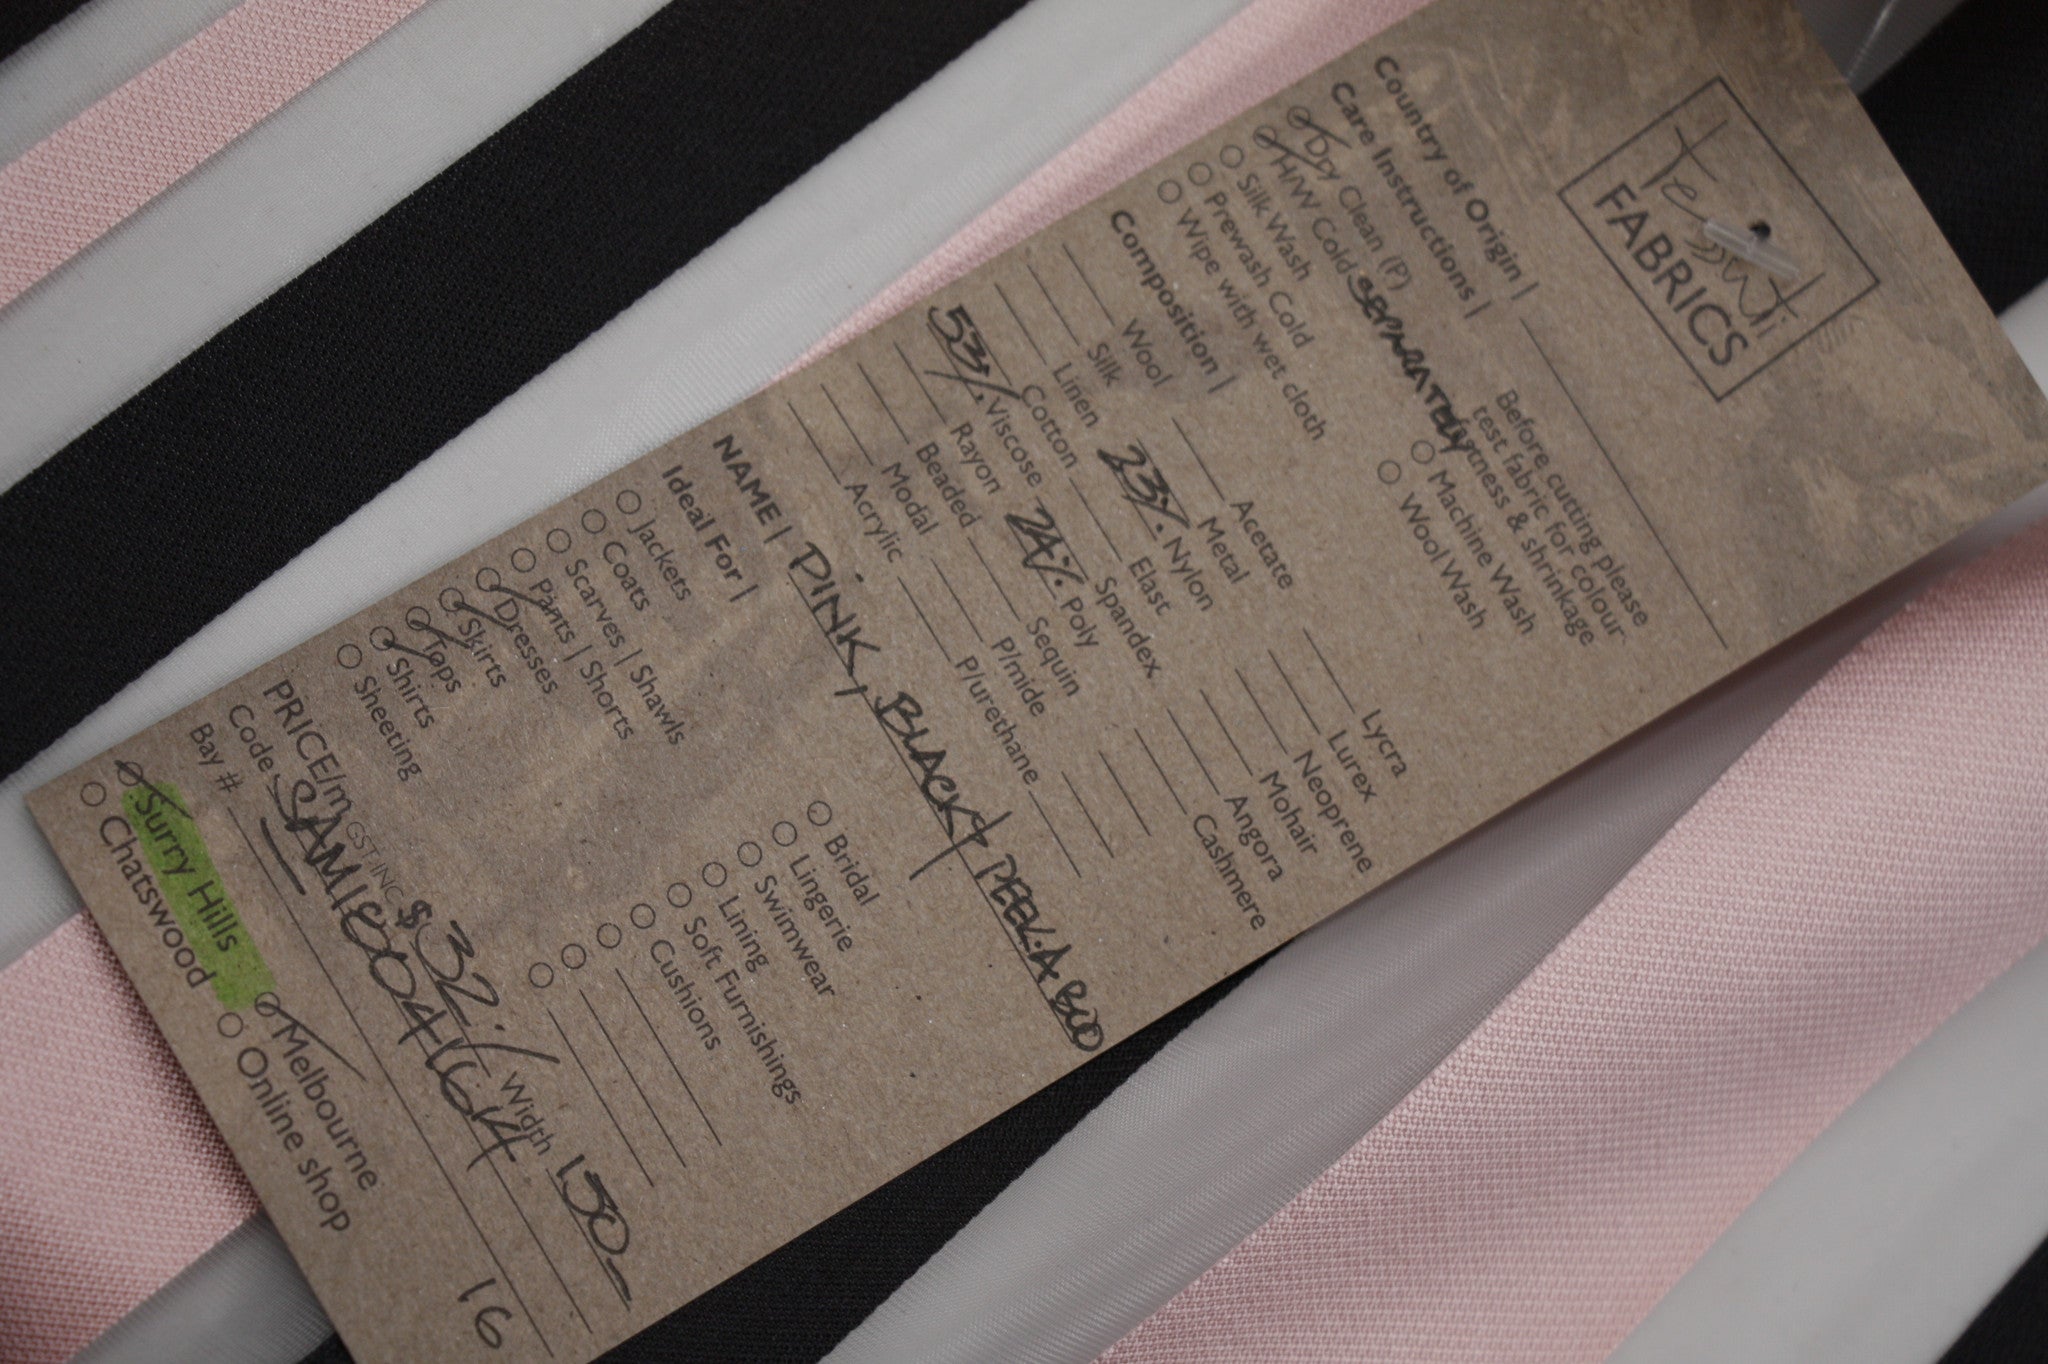 Tessuti
FABRICS
Country of Origin |
Care Instructions |
Before cutting please
test fabric for colour-
fastness & shrinkage
Dry Clean (P)
H/W Cold SEPARATELY
Silk Wash
Prewash Cold
Wipe with wet cloth
Machine Wash
Wool Wash
Composition |
Wool
Silk
Linen
Cotton
53% Viscose
Rayon
Beaded
Modal
Acrylic
Acetate
Metal
23% Nylon
Elast
Spandex
24% Poly
Sequin
P/mide
P/urethane
Lycra
Lurex
Neoprene
Mohair
Angora
Cashmere
NAME | PINK, BLACK PEEK.A BOO
Ideal For |
Jackets
Coats
Scarves | Shawls
Pants | Shorts
Dresses
Skirts
Tops
Shirts
Sheeting
Bridal
Lingerie
Swimwear
Lining
Soft Furnishings
Cushions
PRICE/m GST INC $32. Width 150
Code
Bay #
Surry Hills
Melbourne
Chatswood
Online shop
16